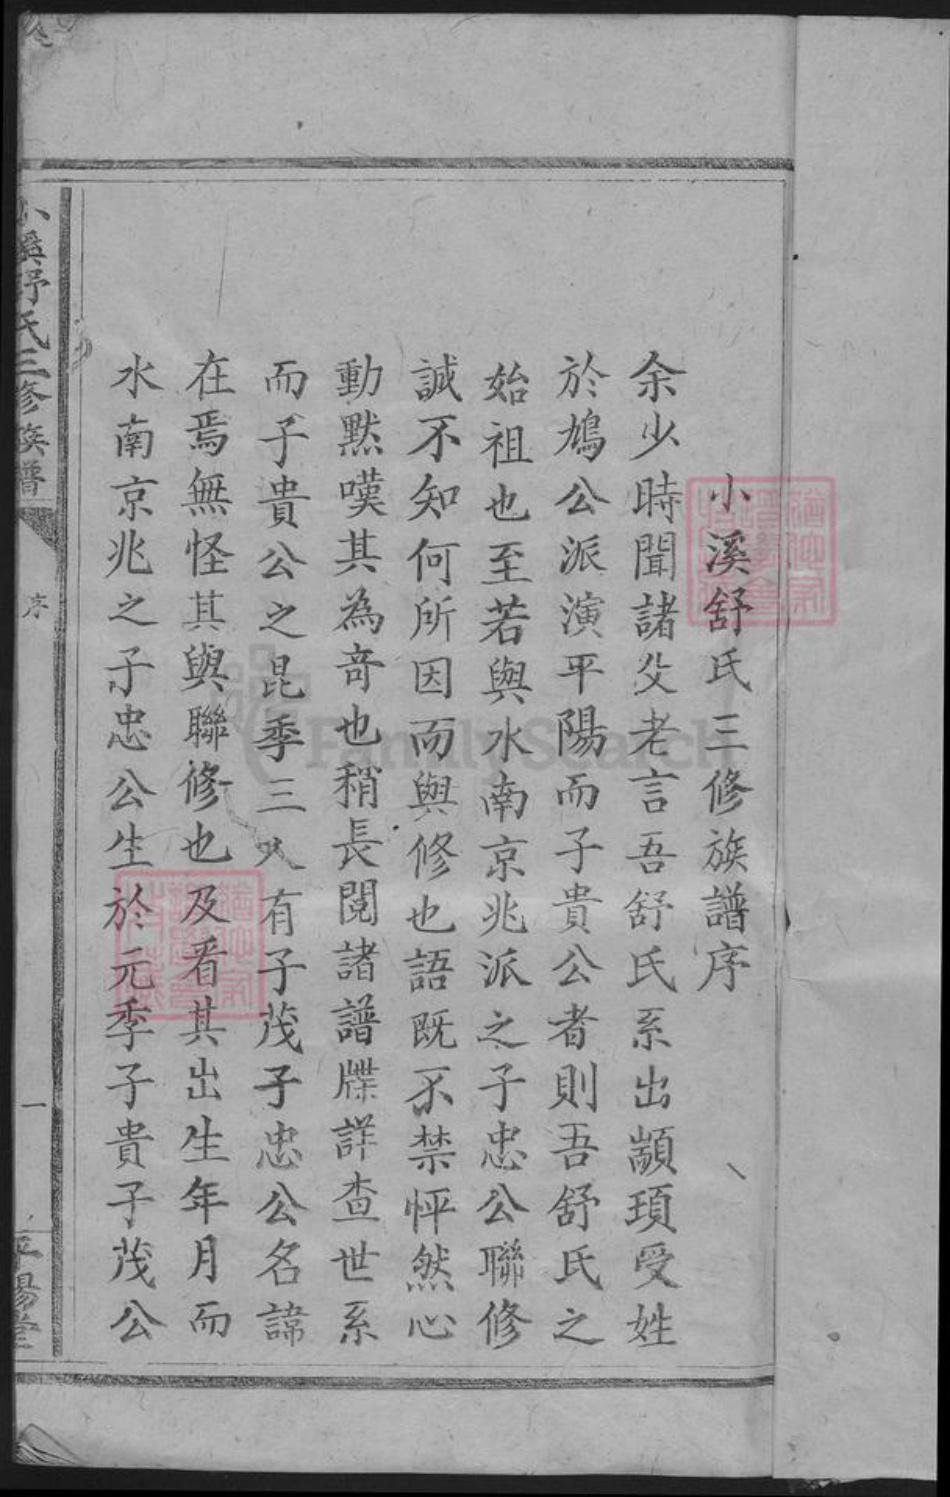 小溪舒氏三修族譜序
余少時聞諸父老言吾舒氏系出顓頊受姓
於鳩公派演平陽而子貴公者則吾舒氏之
始祖也至若與水南京兆派之子忠公聯修
誠不知何所因而與修也語既不禁怦然心
動黙嘆其為奇也稍長閱諸譜牒詳查世系
而子貴公之昆季三人有子茂子忠公名諱
在焉無怪其與聯修也及看其出生年月而
水南京兆之子忠公生於元季子貴子茂公
小溪舒氏三修族譜
序
一
平陽堂
FamilySearch